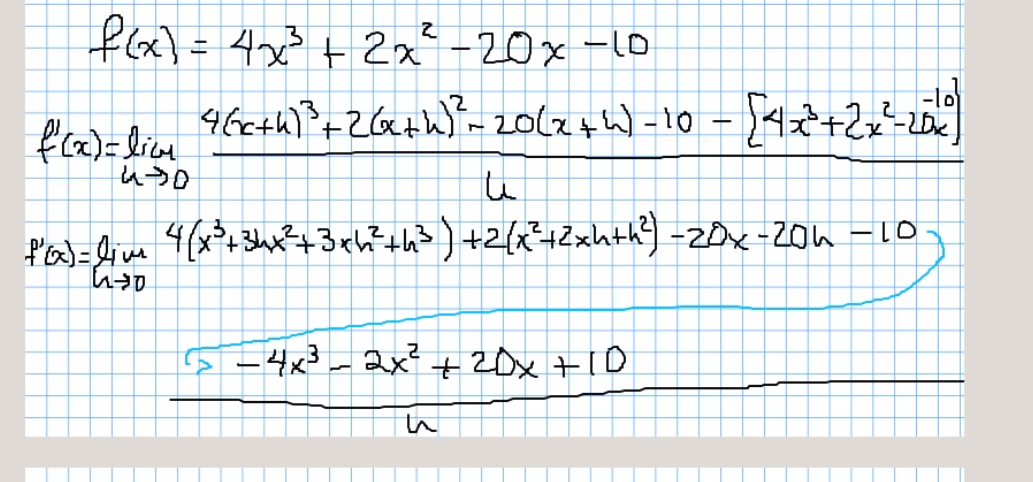 f(x) = 4x³ + 2x² - 20x - 10
f'(x) = lim h→0 4(x+h)³ + 2(x+h)² - 20(x+h) - 10 - [4x³ + 2x² - 20x -10]
h
f'(x) = lim h→0 4(x³ + 3hx² + 3xh² + h³) + 2(x² + 2xh + h²) - 20x - 20h - 10
- 4x³ - 2x² + 20x + 10
h